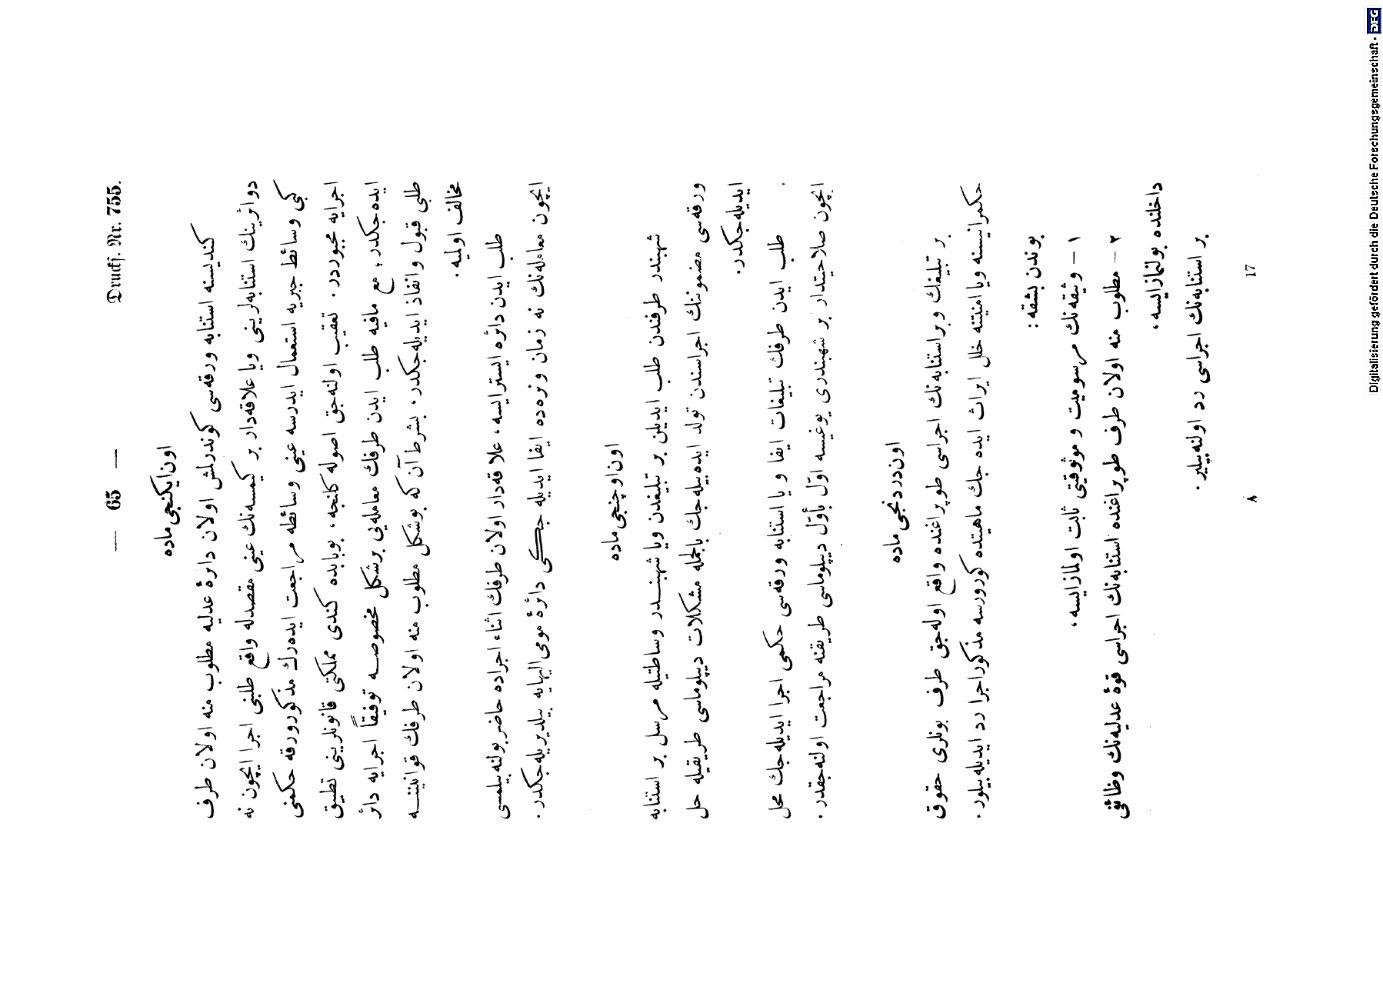 — 65 —
Drucks. Nr. 755.
اون ایکنجی ماده
كندیسنه استنابه ورقه‌سی كوندرلمش اولان دائرهٔ عدلیه مطلوب منه اولان طرف
دوائرینك استنابه‌لرینی ویا علاقه‌دار بر كیمسه‌نك عینی مقصدله واقع طلبنی اجرا ایچون نه
كبی وسائط جبریه استعمال ایدرسه عینی وسائطه مراجعت ایده‌رك مذكور ورقه حكمنی
اجرایه مجبوردر. تعقیب اولنه‌جق اصوله كلنجه، بوبابده كندی مملكتی قانونلرینی تطبیق
ایده‌جكدر؛ مع مافیه طلب ایدن طرفك معامله‌یی برشكل مخصوصه توفیقاً اجرایه دائر
طلبی قبول وانفاذ ایدیله‌جكدر. بشرط آن كه بوشكل مطلوب منه اولان طرفك قوانیننه
مخالف اولمیه.
طلب ایدن دائره ایسترایسه، علاقه‌دار اولان طرفك اثناء اجراده حاضر بولنه‌بیلمسی
ایچون معامله‌نك نه زمان ونره‌ده ایفا ایدیله جكی دائرهٔ مومی الیهایه بیلدیریله‌جكدر.
اون اوچنجی ماده
شهبندر طرفندن طلب ایدیلن بر تبلیغدن ویا شهبندر وساطتیله مرسل بر استنابه
ورقه‌سی مضموننك اجراسندن تولد ایده‌بیله‌جك بالجمله مشكلات دیپلوماسی طریقیله حل
ایدیله‌جكدر.
طلب ایدن طرفك تبلیغات ایفا و یا استنابه ورقه‌سی حكمی اجرا ایدیله‌جك محل
ایچون صلاحیتدار بر شهبندری یوغیسه اوّل بأوّل دیپلوماسی طریقنه مراجعت اولنه‌جقدر.
اون دردنجی ماده
بر تبلیغك وبراستنابه‌نك اجراسی طوپراغنده واقع اوله‌جق طرف بونلری حقوق
حكمرانیسنه ویا امنیتنه خلل ایراث ایده جك ماهیتده كوررسه مذكور اجرا رد ایدیله‌بیلور.
بوندن بشقه:
١ — وثیقه‌نك مرسومیت و موثوقیتی ثابت اولمازایسه،
٢ — مطلوب منه اولان طرف طوپراغنده استنابه‌نك اجراسی قوهٔ عدلیه‌نك وظائفی
داخلنده بولنمازایسه،
بر استنابه‌نك اجراسی رد اولنه‌بیلیر.
٨
17
Digitalisierung gefördert durch die Deutsche Forschungsgemeinschaft - DFG